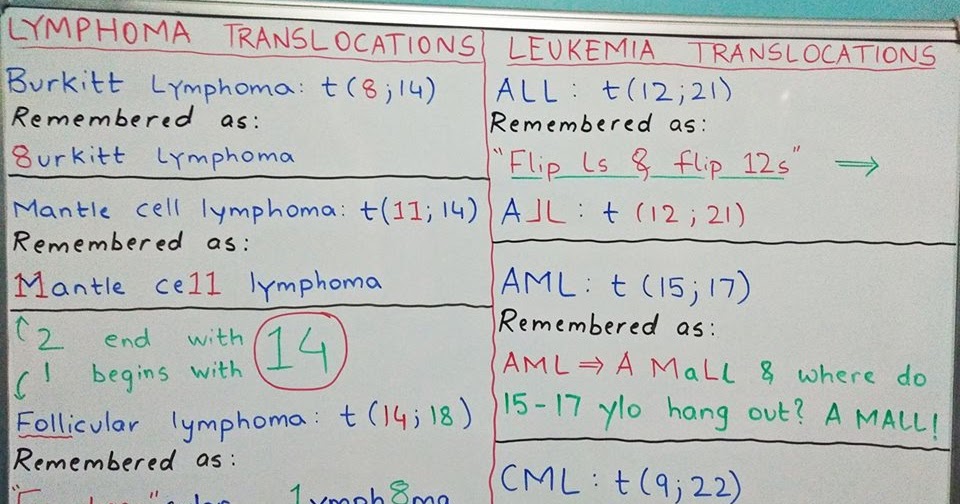 LYMPHOMA TRANSLOCATIONS
Burkitt Lymphoma: t(8;14)
Remembered as:
8urkitt lymphoma
Mantle cell lymphoma: t(11; 14)
Remembered as:
Mantle ce11 lymphoma
2 end with 14
1 begins with
Follicular lymphoma: t(14; 18)
Remembered as:
1ymph8ma
LEUKEMIA TRANSLOCATIONS
ALL: t(12;21)
Remembered as:
"Flip Ls & flip 12s" ⇒
A⅃L: t (12; 21)
AML: t (15; 17)
Remembered as:
AML ⇒ A MaLL & where do
15-17 y/o hang out? A MALL!
CML: t(9;22)